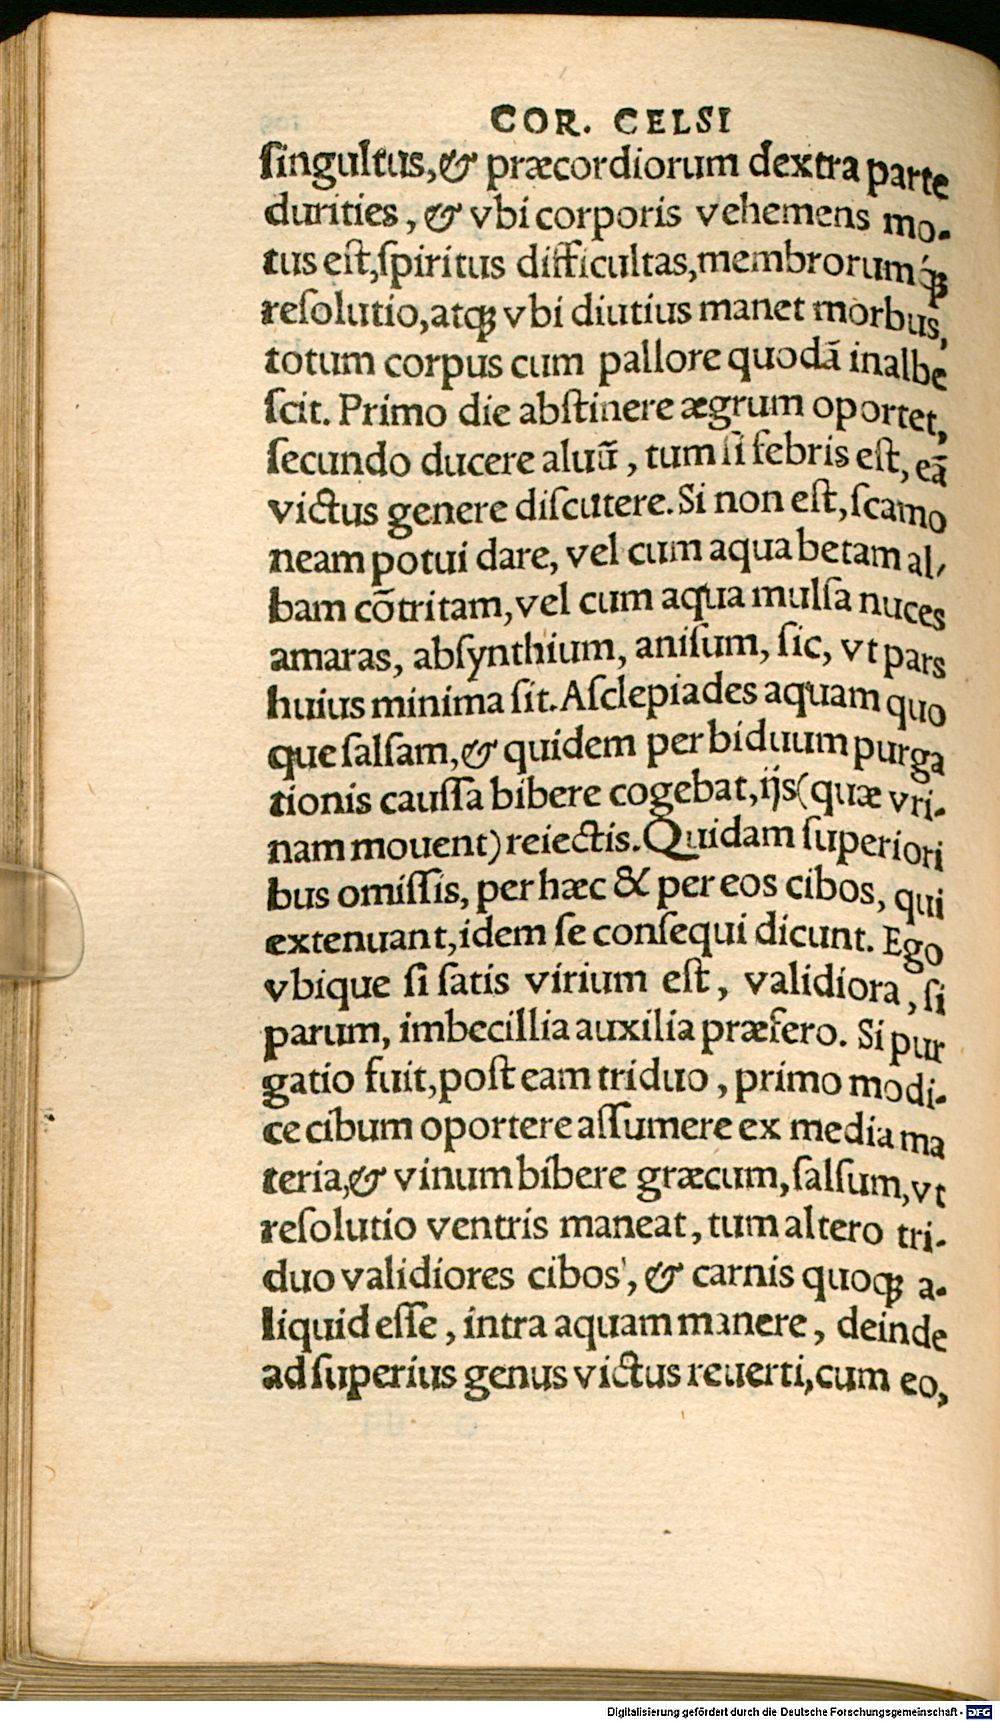 COR. CELSI
ſingultus, & præcordiorum dextra parte
durities, & vbi corporis vehemens mo-
tus eſt, ſpiritus difficultas, membrorumq́ꝫ
reſolutio, atqꝫ vbi diutius manet morbus,
totum corpus cum pallore quodã inalbe
ſcit. Primo die abſtinere ægrum oportet,
ſecundo ducere aluũ, tum ſi febris eſt, eã
victus genere diſcutere. Si non eſt, ſcamo
neam potui dare, vel cum aqua betam al-
bam cõtritam, vel cum aqua mulſa nuces
amaras, abſynthium, aniſum, ſic, vt pars
huius minima ſit. Aſclepiades aquam quo
que ſalſam, & quidem per biduum purga
tionis cauſſa bibere cogebat, ijs (quæ vri-
nam mouent) reiectis. Quidam ſuperiori
bus omiſſis, per hæc & per eos cibos, qui
extenuant, idem ſe conſequi dicunt. Ego
vbique ſi ſatis virium eſt, validiora, ſi
parum, imbecillia auxilia præfero. Si pur
gatio fuit, poſt eam triduo, primo modi-
ce cibum oportere aſſumere ex media ma
teria, & vinum bibere græcum, ſalſum, vt
reſolutio ventris maneat, tum altero tri-
duo validiores cibos, & carnis quoqꝫ a-
liquid eſſe, intra aquam manere, deinde
ad ſuperius genus victus reuerti, cum eo,
Digitalisierung gefördert durch die Deutsche Forschungsgemeinschaft - DFG